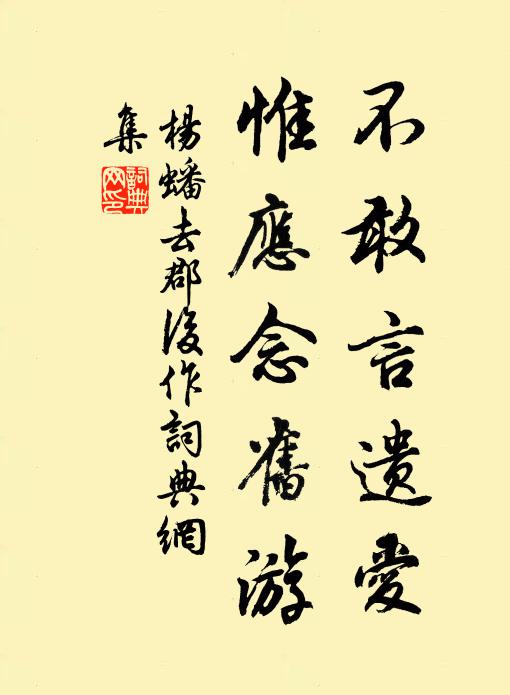 不敢言遺愛
惟應念舊游
楊蟠去郡後作詞典網
集
詞典
网印